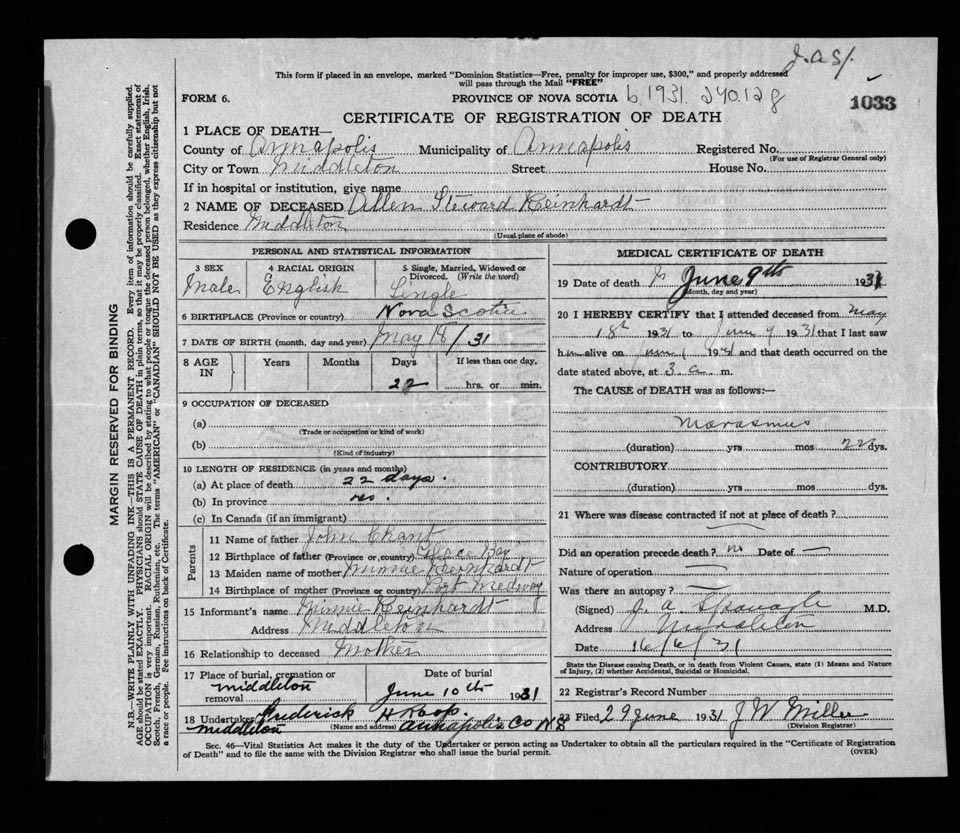 This form if placed in an envelope, marked "Dominion Statistics—Free, penalty for improper use, $300," and properly addressed
will pass through the Mail "FREE"
FORM 6.
PROVINCE OF NOVA SCOTIA b.1931. 240.128
1033
CERTIFICATE OF REGISTRATION OF DEATH
1 PLACE OF DEATH—
County of Annapolis Municipality of Annapolis Registered No.
(For use of Registrar General only)
City or Town Middleton Street House No.
If in hospital or institution, give name
2 NAME OF DECEASED Allen Steward Reinhardt
Residence Middleton
(Usual place of abode)
PERSONAL AND STATISTICAL INFORMATION
3 SEX Male
4 RACIAL ORIGIN English
5 Single, Married, Widowed or Divorced. (Write the word) Single
6 BIRTHPLACE (Province or country) Nova Scotia
7 DATE OF BIRTH (month, day and year) May 18/31
8 AGE IN Years Months Days If less than one day,
22 hrs. or min.
9 OCCUPATION OF DECEASED
(a)
(Trade or occupation or kind of work)
(b)
(Kind of industry)
10 LENGTH OF RESIDENCE (in years and months)
(a) At place of death 22 days.
(b) In province no.
(c) In Canada (if an immigrant)
Parents
11 Name of father John Chant
12 Birthplace of father (Province or country) Glace Bay
13 Maiden name of mother Minnie Reinhardt
14 Birthplace of mother (Province or country) Port Medway
15 Informant's name Minnie Reinhardt
Address Middleton
16 Relationship to deceased Mother
17 Place of burial, cremation or removal Middleton
Date of burial June 10th 1931
18 Undertaker Frederick
Middleton (Name and address) Annapolis Co N S
MEDICAL CERTIFICATE OF DEATH
19 Date of death June 9th 1931
(Month, day and year)
20 I HEREBY CERTIFY that I attended deceased from May
18th 1931 to June 9 1931 that I last saw
him alive on June 1931 and that death occurred on the
date stated above, at 3 a. m.
The CAUSE of DEATH was as follows:—
Marasmus
(duration) yrs mos 22 dys.
CONTRIBUTORY
(duration) yrs. mos. dys.
21 Where was disease contracted if not at place of death?
Did an operation precede death? no Date of —
Nature of operation
Was there an autopsy?
(Signed) J. A. Sponagle M.D.
Address Middleton
Date 16/6/31
State the Disease causing Death, or in death from Violent Causes, state (1) Means and Nature
of Injury, (2) whether Accidental, Suicidal or Homicidal.
22 Registrar's Record Number
23 Filed 29 June 1931 J W Miller
(Division Registrar)
Sec. 46—Vital Statistics Act makes it the duty of the Undertaker or person acting as Undertaker to obtain all the particulars required in the "Certificate of Registration
of Death" and to file the same with the Division Registrar who shall issue the burial permit.
(OVER)
MARGIN RESERVED FOR BINDING
N.B.—WRITE PLAINLY WITH UNFADING INK—THIS IS A PERMANENT RECORD. Every item of information should be carefully supplied.
AGE should be stated EXACTLY. PHYSICIANS should STATE CAUSE OF DEATH in plain terms, so that it may be properly classified. Exact statement of
OCCUPATION is very important. RACIAL ORIGIN will be described by stating to what people or tongue the deceased person belonged, whether English, Irish,
Scotch, French, German, Russian, Ruthenian, etc. The terms "AMERICAN" or "CANADIAN" SHOULD NOT BE USED as they express citizenship but not
a race or people. See instructions on back of Certificate.